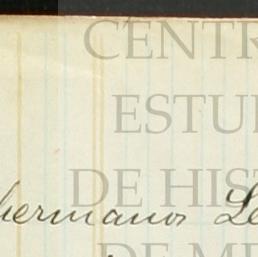 CENTR
ESTU
DE HIS
hermanos Le
DE ME